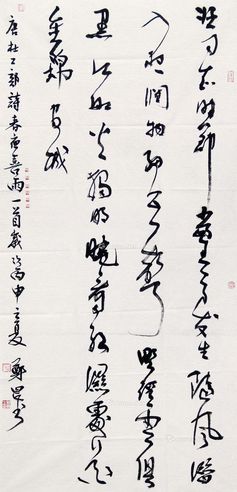 好雨知時節當春乃發生隨風潛
入夜潤物細無聲野徑雲俱
黑江船火獨明曉看紅濕處花
重錦官城
唐杜工部詩春夜喜雨一首歲次丙申之夏鄭